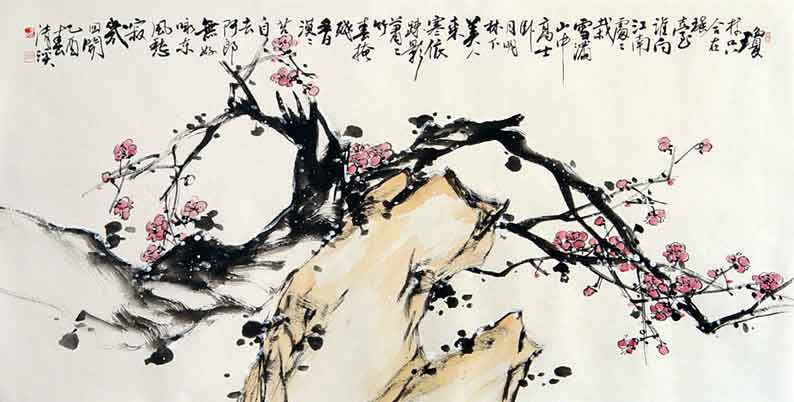 瓊
枝只
合在
瑤
臺
誰向
江南
處々
栽
雪滿
山中
高士
臥
月明
林下
美人
來
寒依
疎影
蕭々
竹
春掩
殘
香
漠々
苔
自
去
阿郎
無好
詠東
風愁
寂
幾
回開
酉春
清溪